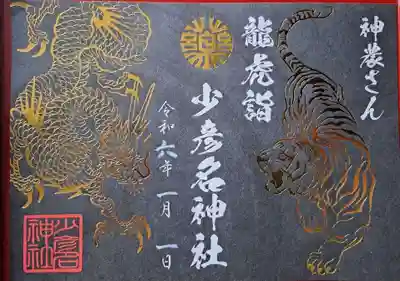 神農さん
龍虎詣
薬
少彦名神社
令和六年一月一日
少彦名神社